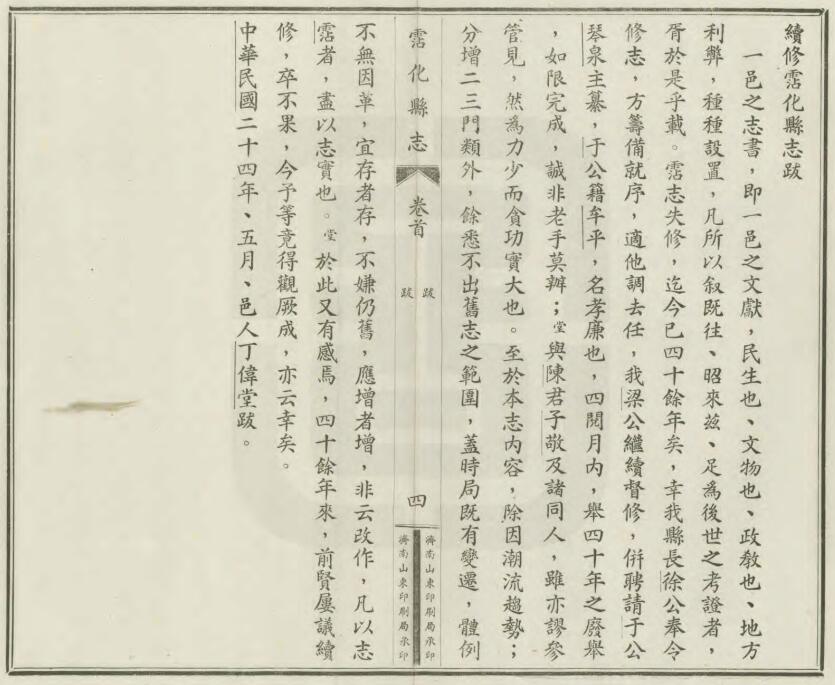 續修霑化縣志跋
一邑之志書，即一邑之文獻，民生也、文物也、政教也、地方
利弊，種種設置，凡所以叙既往、昭來玆、足為後世之考證者，
胥於是乎載。霑志失修，迄今已四十餘年矣，幸我縣長徐公奉令
修志，方籌備就序，適他調去任，我梁公繼續督修，併聘請于公
琴泉主纂，于公籍牟平，名孝廉也，四閱月內，舉四十年之廢舉
，如限完成，誠非老手莫辦；堂與陳君子敬及諸同人，雖亦謬參
管見，然為力少而貪功實大也。至於本志内容，除因潮流趨勢；
分增二三門類外，餘悉不出舊志之範圍，蓋時局既有變遷，體例
霑化縣志
卷首
跋
跋
四
濟南山東印刷局承印
濟南山東印刷局承印
不無因革，宜存者存，不嫌仍舊，應增者增，非云改作，凡以志
霑者，盡以志實也。堂於此又有感焉，四十餘年來，前賢屢議續
修，卒不果，今予等竟得觀厥成，亦云幸矣。
中華民國二十四年、五月、邑人丁偉堂跋。